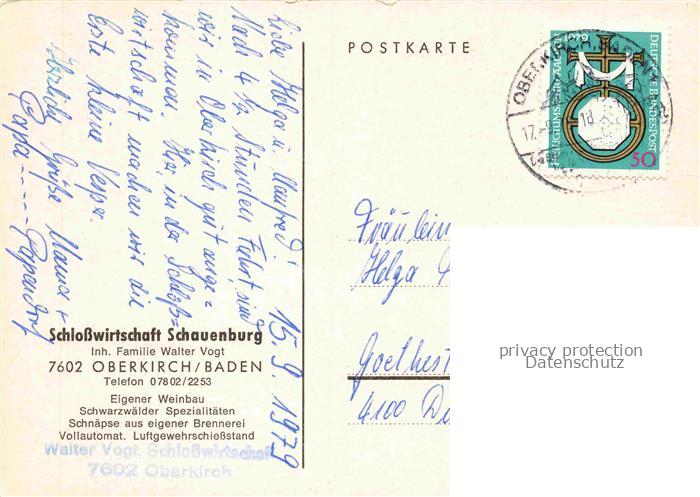 15.9.1979
Liebe Helga u. Manfred!
Nach 4 1/2 Stunden Fahrt sind
wir in Oberkirch gut ange=
kommen. Hier in der Schloß=
wirtschaft machen wir die
erste kleine Vesper.
Herzliche Grüße Mama +
Papa
POSTKARTE
OBERKIRCH
17.
18
DEUTSCHE BUNDESPOST
HEILIGTUMSFAHRT AACHEN 1979
50
Fräulein
Helga
Goethest
4100 Du
privacy protection
Datenschutz
Schloßwirtschaft Schauenburg
Inh. Familie Walter Vogt
7602 OBERKIRCH/BADEN
Telefon 07802/2253
Eigener Weinbau
Schwarzwälder Spezialitäten
Schnäpse aus eigener Brennerei
Vollautomat. Luftgewehrschießstand
Walter Vogt, Schloßwirtschaft
7602 Oberkirch